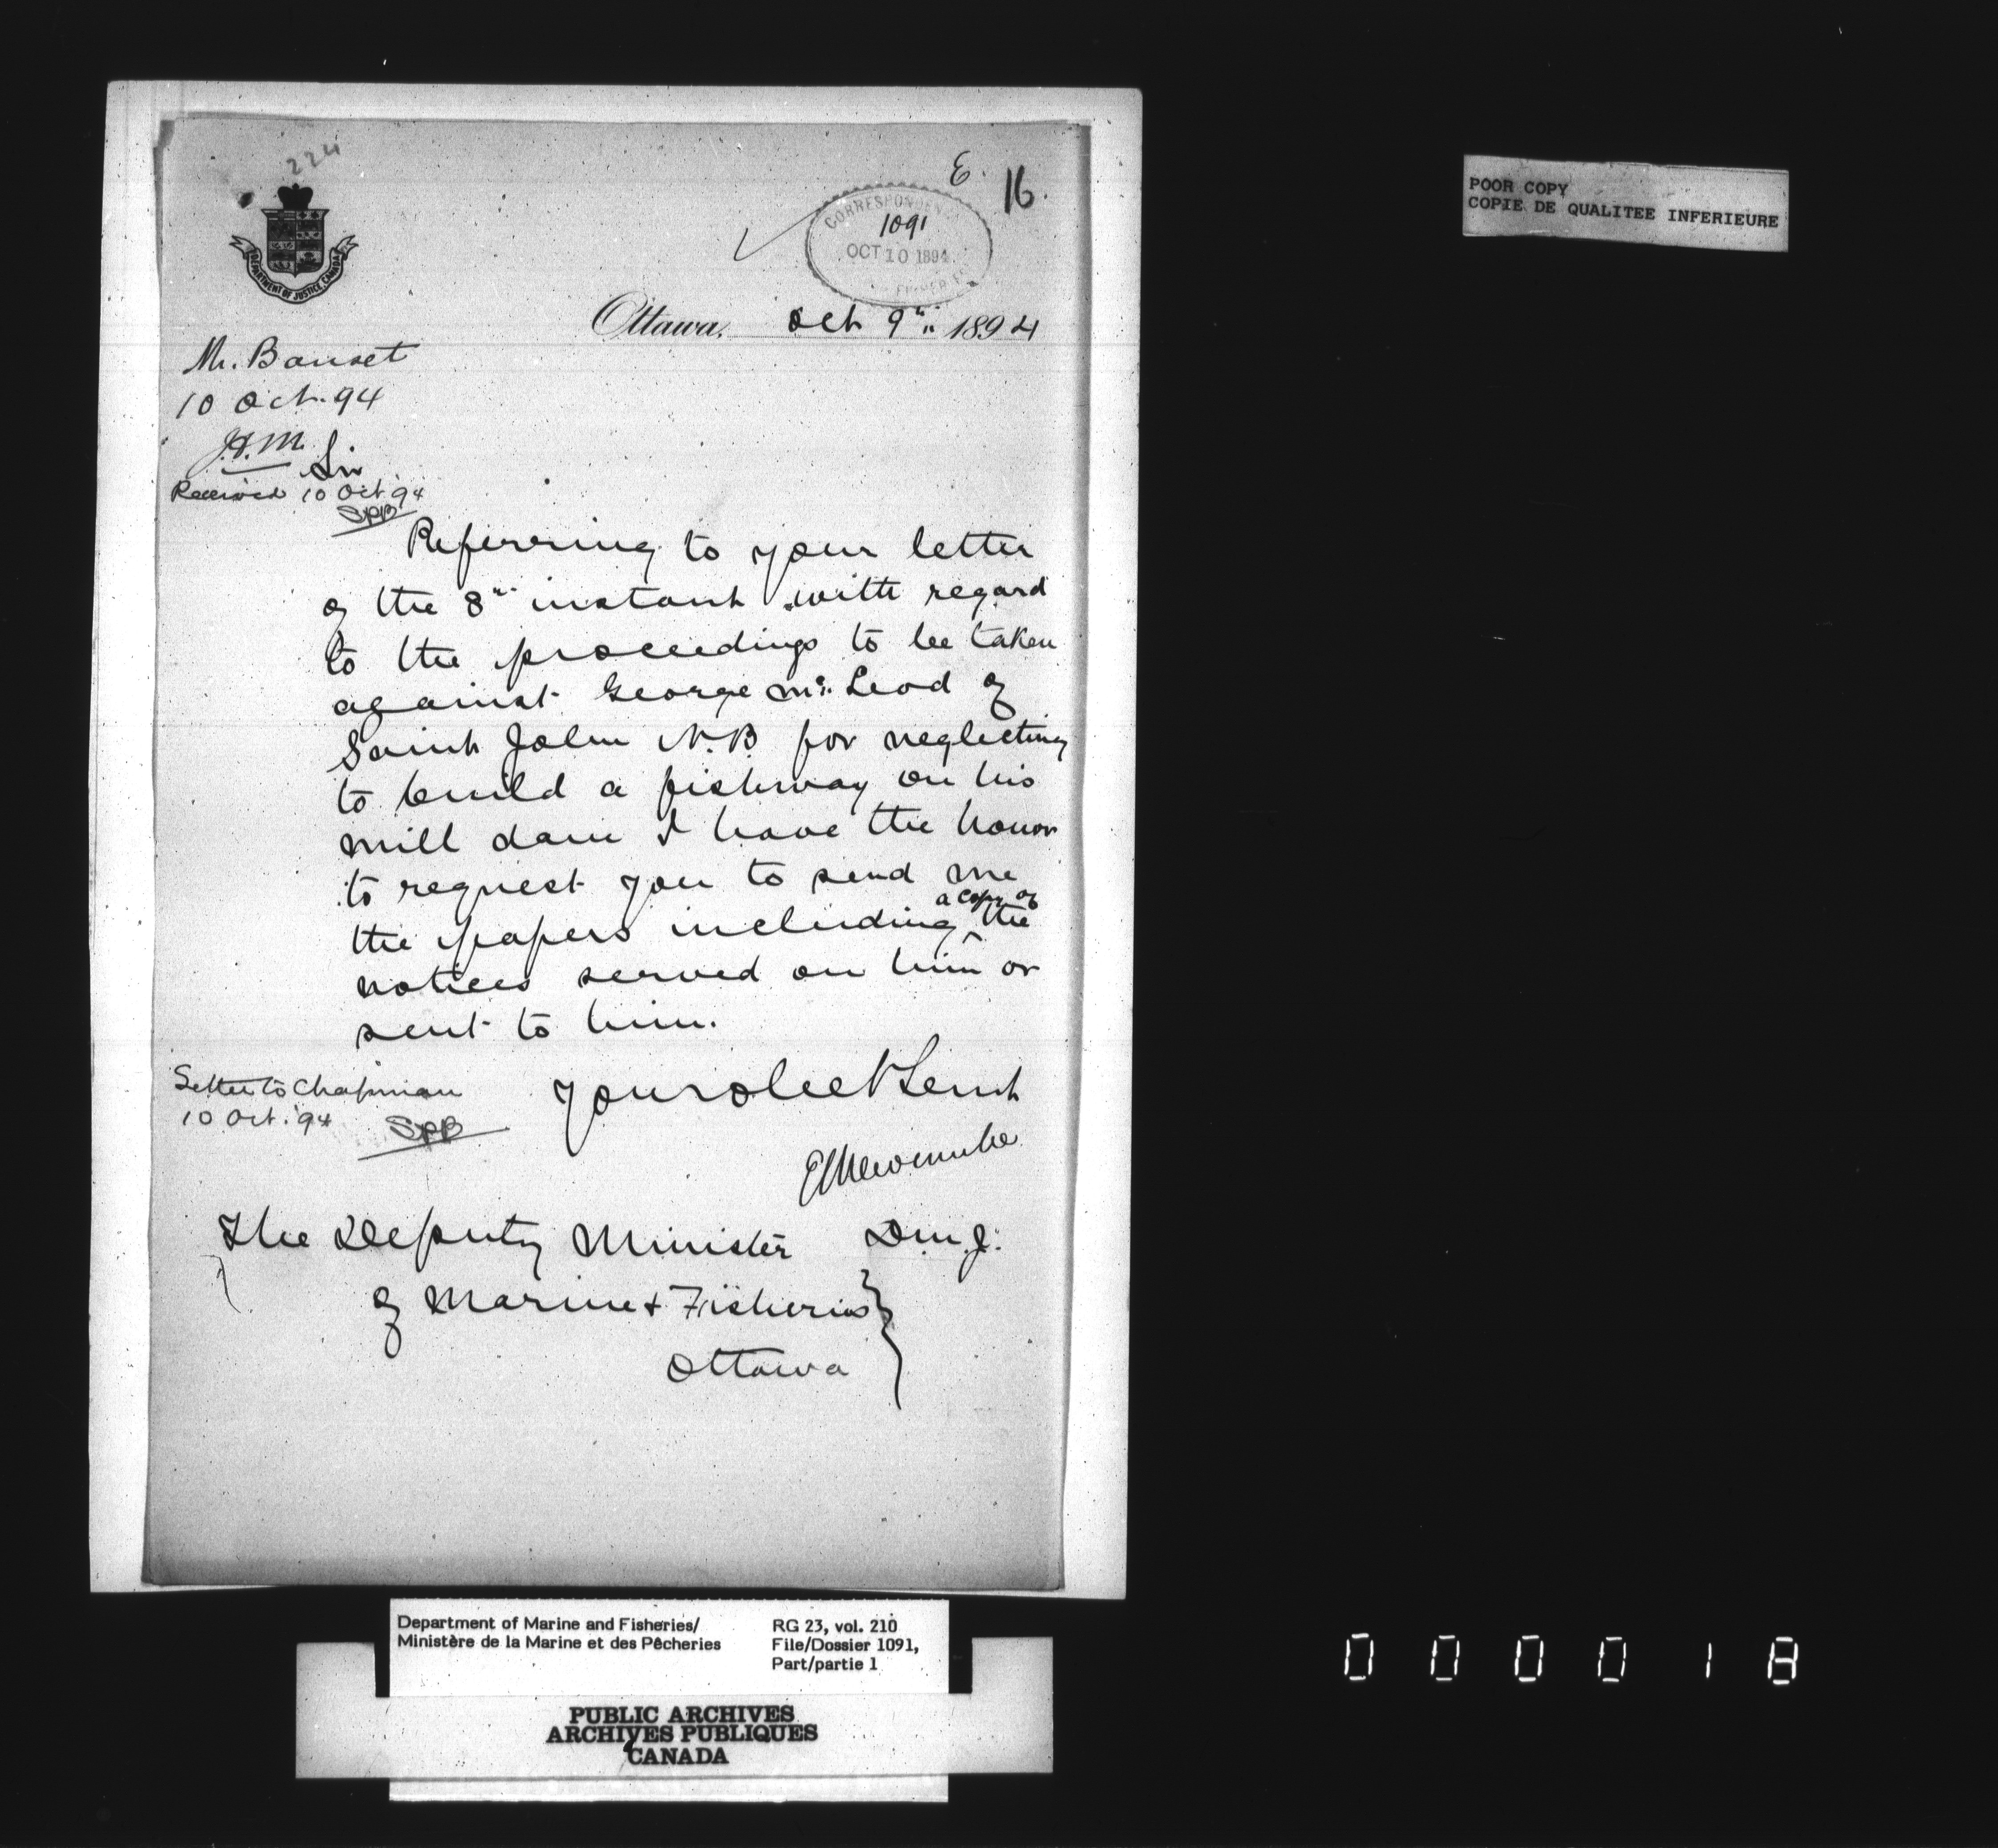 224
E. 16.
CORRESPONDENCE
1091
OCT 10 1894
DEPARTMENT OF JUSTICE, CANADA
Ottawa, Oct 9th 1894
Mr. Bauset
10 Oct. 94
J.H.M.
Sir
Received 10 Oct 94
SPB
Referring to your letter
of the 8th instant with regard
to the proceedings to be taken
against George McLeod of
Saint John N.B. for neglecting
to build a fishway on his
mill dam I have the honor
to request you to send me
the papers including a copy of the
notices served on him or
sent to him.
Letter to Chapman
10 Oct. '94
SPB
Your obedt Servt
E L Newcombe
D.M.J.
The Deputy Minister
of Marine & Fisheries
Ottawa
POOR COPY
COPIE DE QUALITEE INFERIEURE
Department of Marine and Fisheries/
Ministère de la Marine et des Pêcheries
RG 23, vol. 210
File/Dossier 1091,
Part/partie 1
PUBLIC ARCHIVES
ARCHIVES PUBLIQUES
CANADA
000018